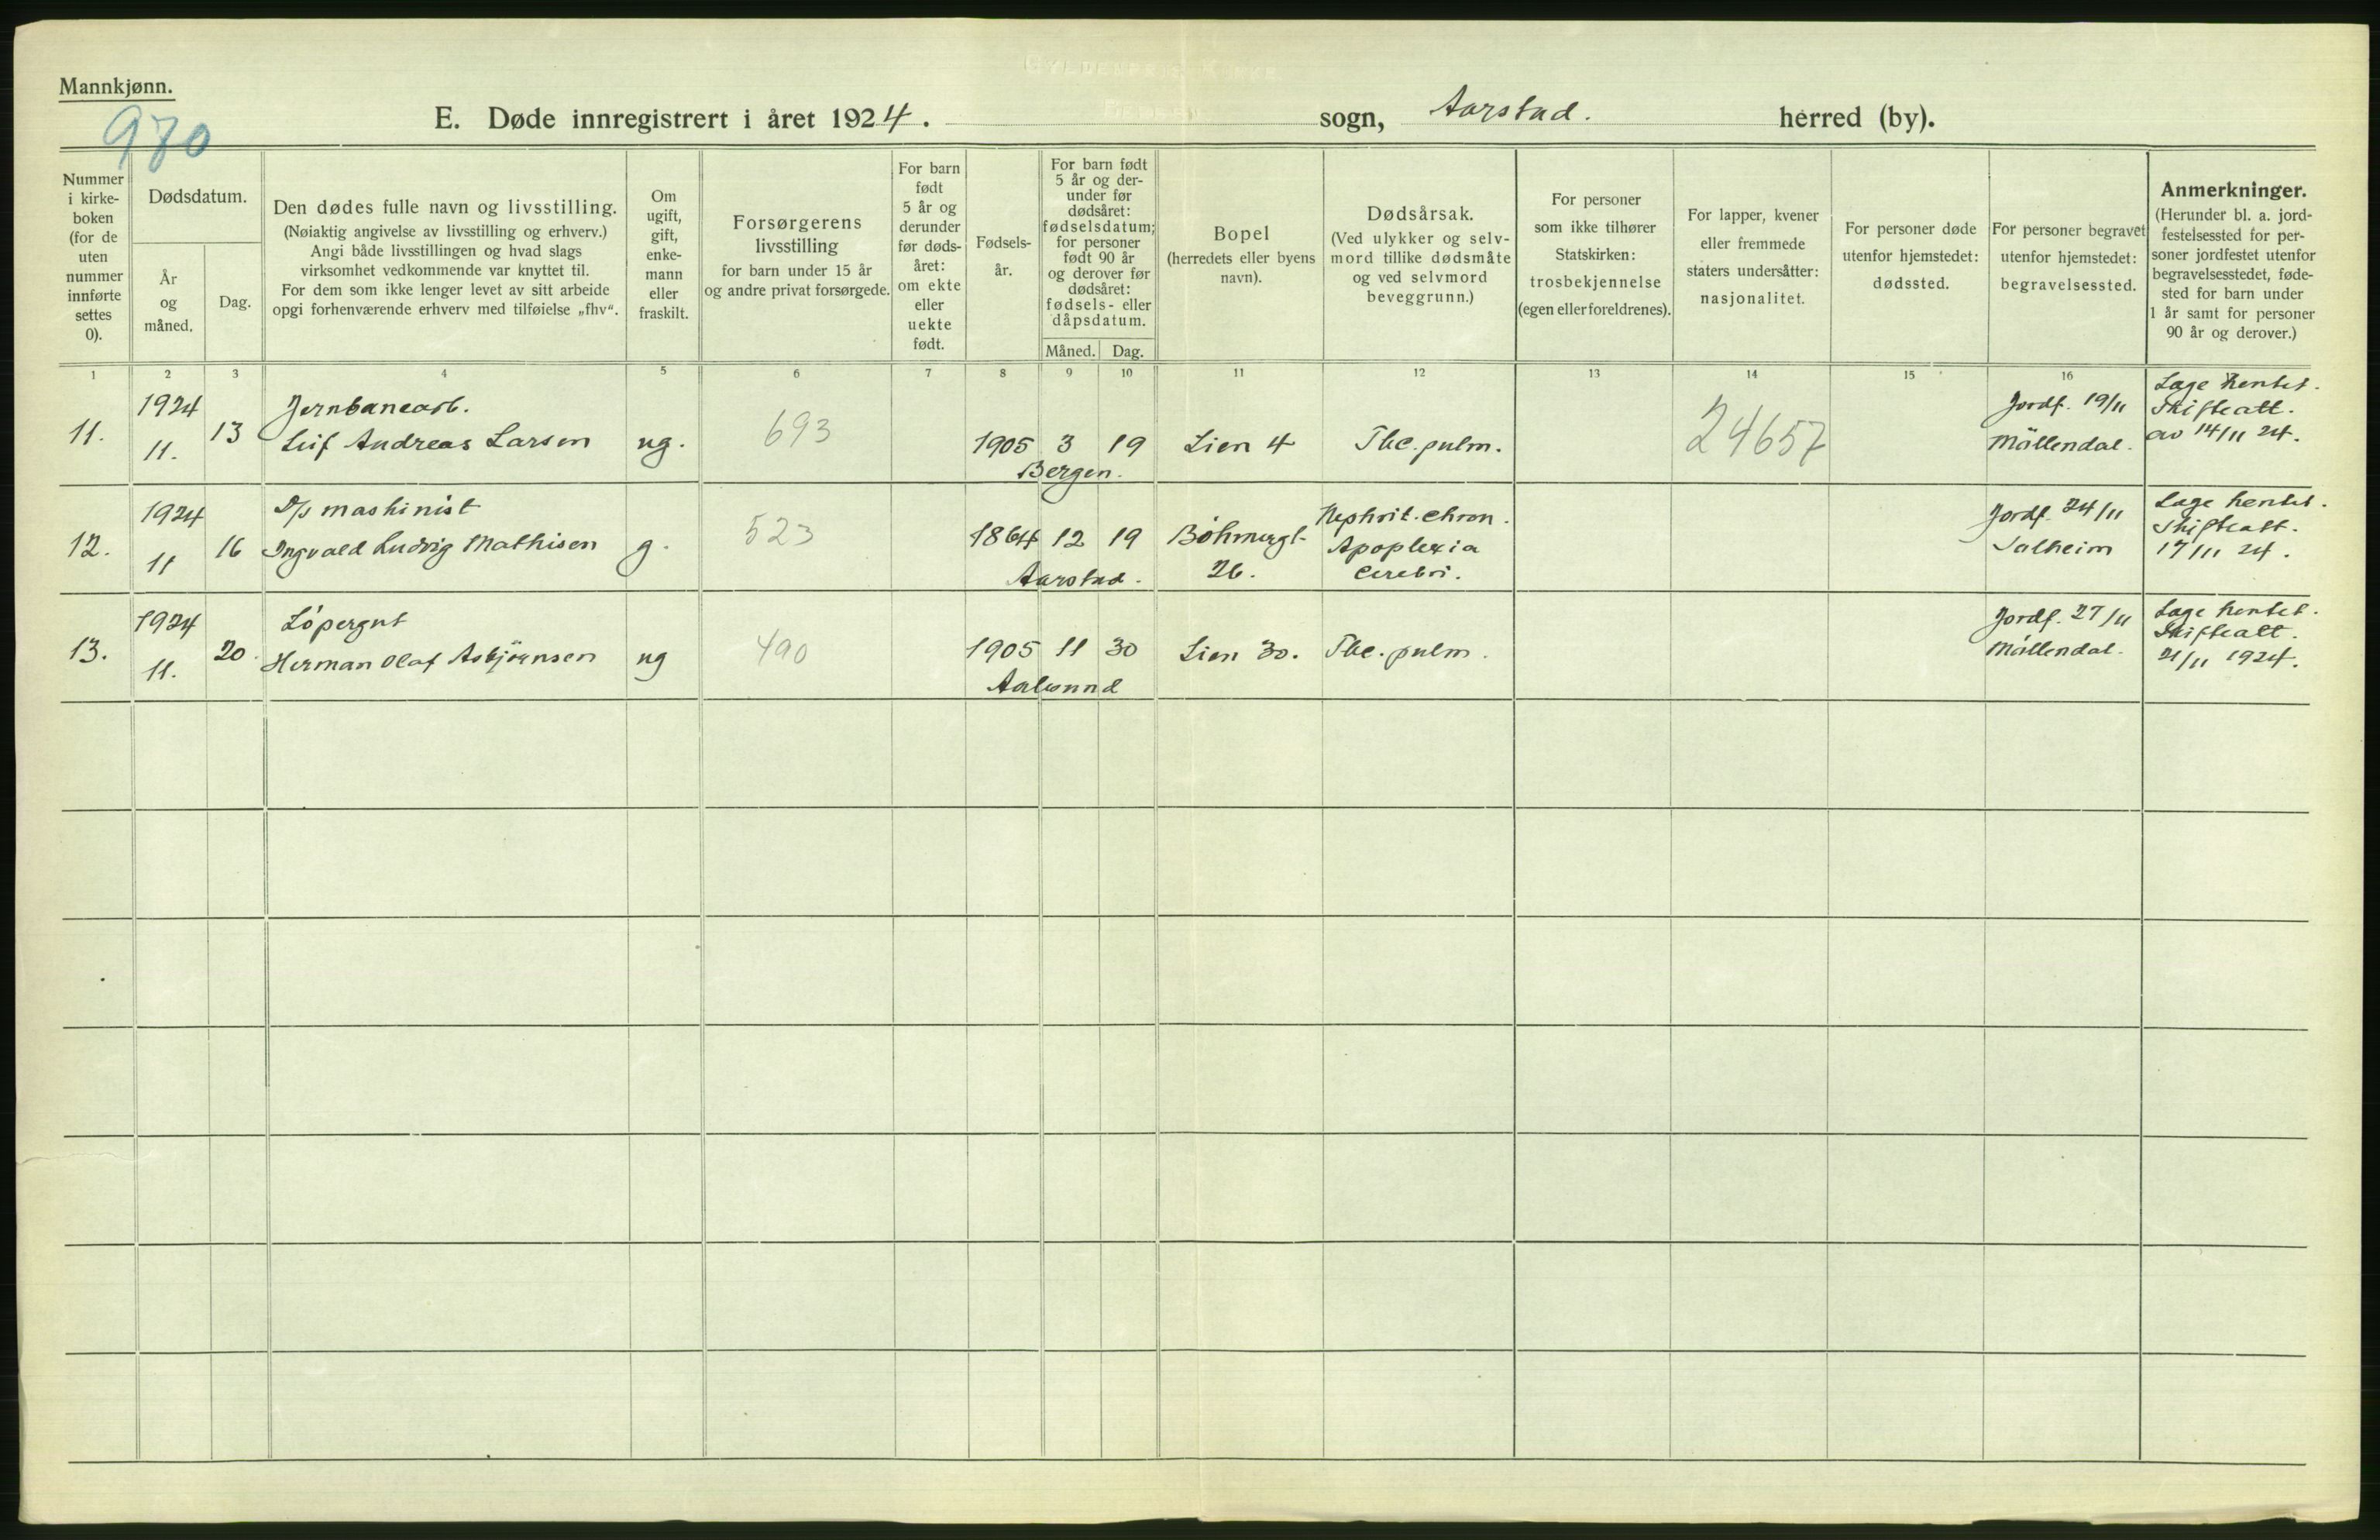 Mannkjønn.
970
E. Døde innregistrert i året 1924. sogn, Aarstad. herred (by).
Nummer i kirke- boken (for de uten nummer innførte settes 0).
Dødsdatum.
År og måned.
Dag.
Den dødes fulle navn og livsstilling.
(Nøiaktig angivelse av livsstilling og erhverv.)
Angi både livsstillingen og hvad slags
virksomhet vedkommende var knyttet til.
For dem som ikke lenger levet av sitt arbeide
opgi forhenværende erhverv med tilføielse „fhv“.
Om ugift, gift, enke- mann eller fraskilt.
Forsørgerens
livsstilling
for barn under 15 år
og andre privat forsørgede.
For barn født 5 år og derunder før døds- året: om ekte eller uekte født.
Fødsels- år.
For barn født 5 år og der- under før dødsåret: fødselsdatum; for personer født 90 år og derover før dødsåret: fødsels- eller dåpsdatum.
Måned. Dag.
Bopel
(herredets eller byens
navn).
Dødsårsak.
(Ved ulykker og selv-
mord tillike dødsmåte
og ved selvmord
beveggrunn.)
For personer
som ikke tilhører
Statskirken:
trosbekjennelse
(egen eller foreldrenes).
For lapper, kvener
eller fremmede
staters undersåtter:
nasjonalitet.
For personer døde
utenfor hjemstedet:
dødssted.
For personer begravet
utenfor hjemstedet:
begravelsessted.
Anmerkninger.
(Herunder bl. a. jord-
festelsessted for per-
soner jordfestet utenfor
begravelsesstedet, føde-
sted for barn under
1 år samt for personer
90 år og derover.)
1 2 3 4 5 6 7 8 9 10 11 12 13 14 15 16
11. 1924 11. 13
Jernbanearb.
Leif Andreas Larsen
ug. 693 1905 3 19
Bergen.
Lien 4 Tbc. pulm. 24657
Jordf. 19/11
Möllendal.
Læge hentet.
Skifteatt.
av 14/11 24.
12. 1924 11 16
D/s maskinist
Ingvald Ludvig Mathisen
g. 523 1864 12 19
Aarstad.
26.
Nephrit. chron.
Apoplexia
cerebri.
Jordf. 24/11
Solheim
Læge hentet.
Skifteatt.
17/11 24.
13. 1924 11. 20.
Löpergut
Herman Olaf Asbjörnsen
ug 490 1905 11 30
Aalesund
Lien 30. Tbc. pulm.
Jordf. 27/11
Möllendal.
Læge hentet.
Skifteatt.
21/11 1924.